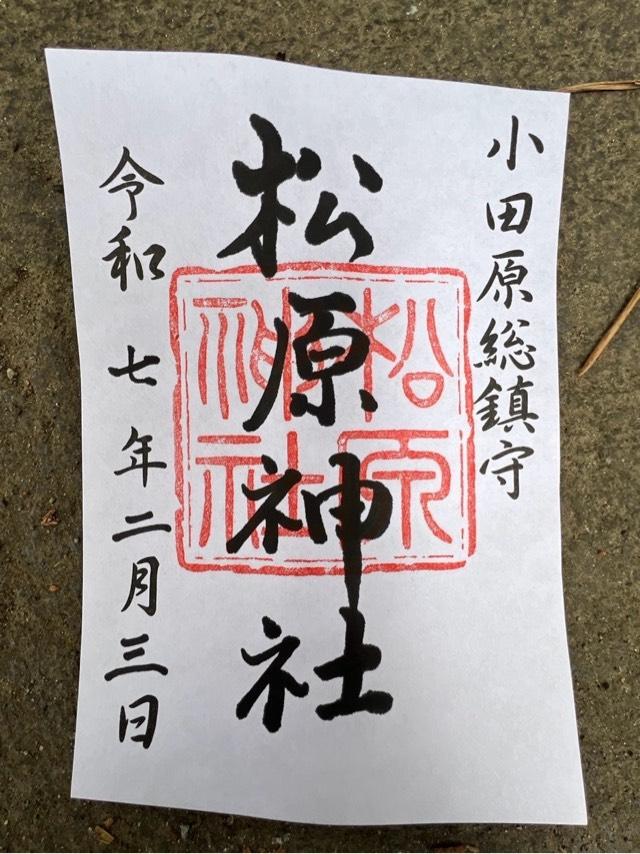 小田原総鎮守
松原神社
松原神社
令和 七 年二月三日